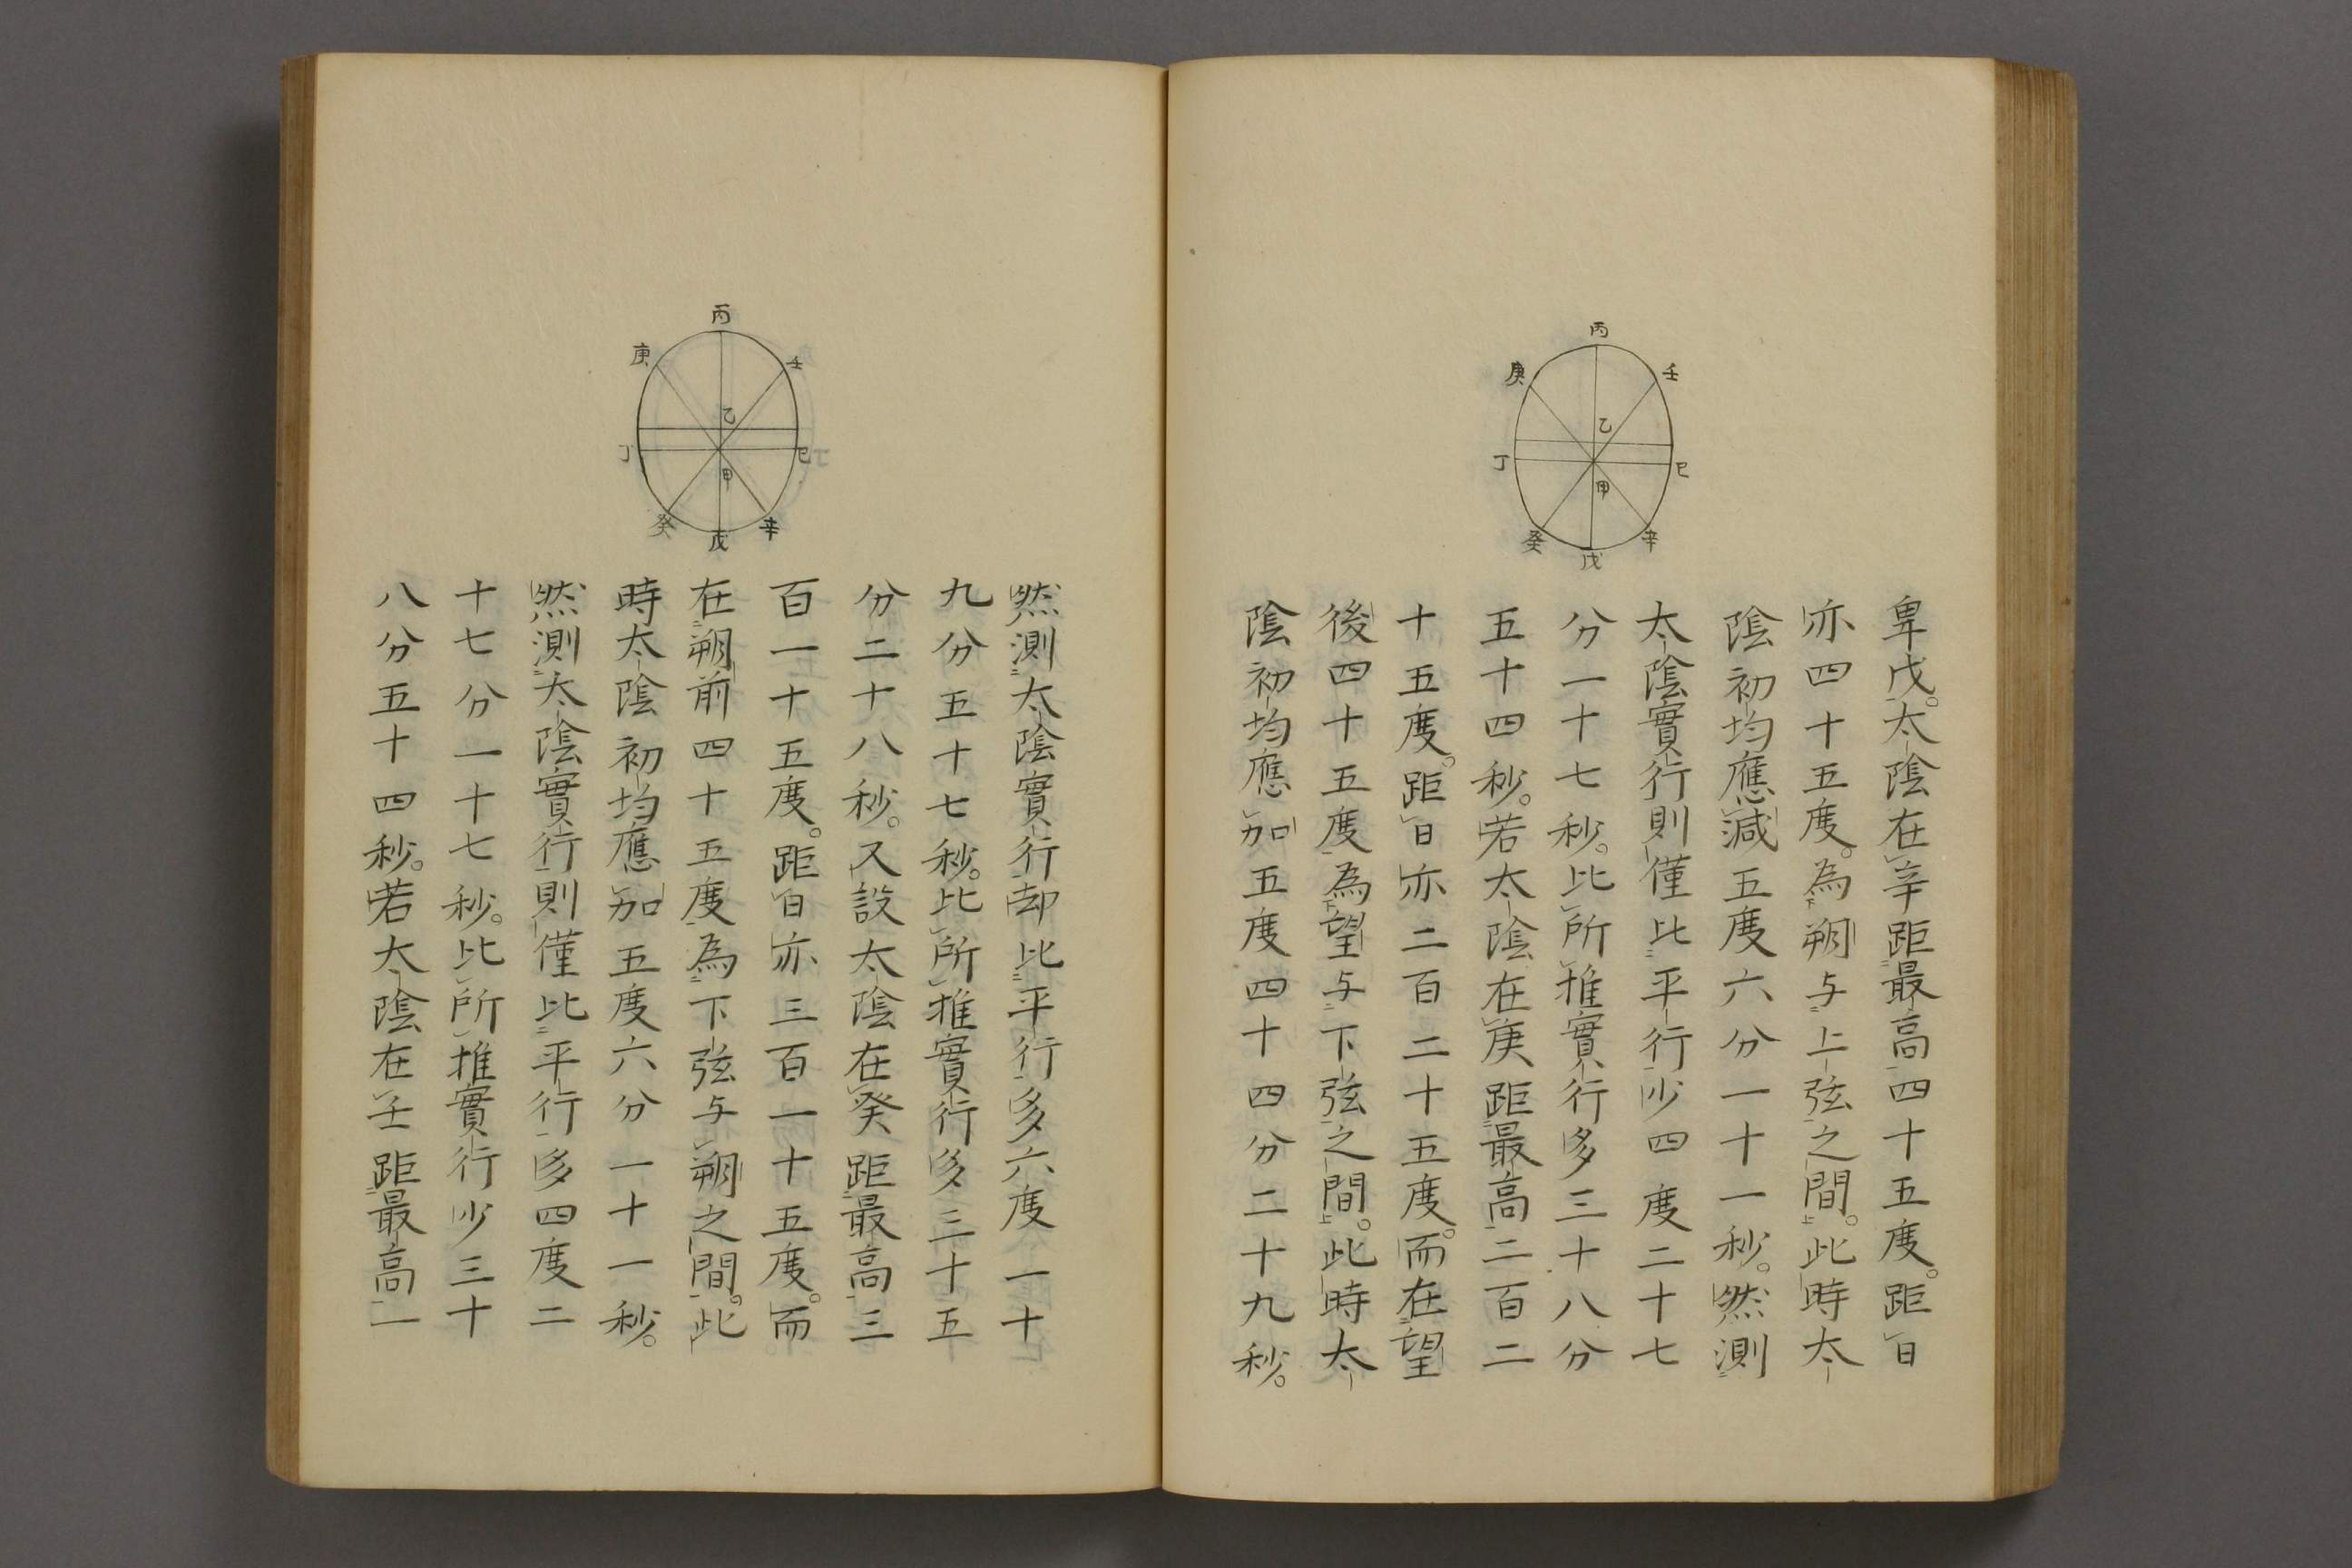 丙
壬
庚
乙
丁
巳
甲
癸
辛
戊
卑戊。太陰在辛距最高四十五度。距日
亦四十五度。為朔与上弦之間。此時太
陰初均應減五度六分一十一秒。然測
太陰實行則僅比平行少四度二十七
分一十七秒。比所推實行多三十八分
五十四秒。若太陰在庚距最高二百二
十五度。距日亦二百二十五度。而在望
後四十五度為望与下弦之間。此時太
陰初均應加五度四十四分二十九秒。
丙
庚
壬
乙
丁
巳
甲
癸
辛
戊
然測太陰實行却比平行多六度一十
九分五十七秒。比所推實行多三十五
分二十八秒。又設太陰在癸距最高三
百一十五度。距日亦三百一十五度。而
在朔前四十五度為下弦与朔之間。此
時太陰初均應加五度六分一十一秒。
然測太陰實行則僅比平行多四度二
十七分一十七秒。比所推實行少三十
八分五十四秒。若太陰在壬距最高一